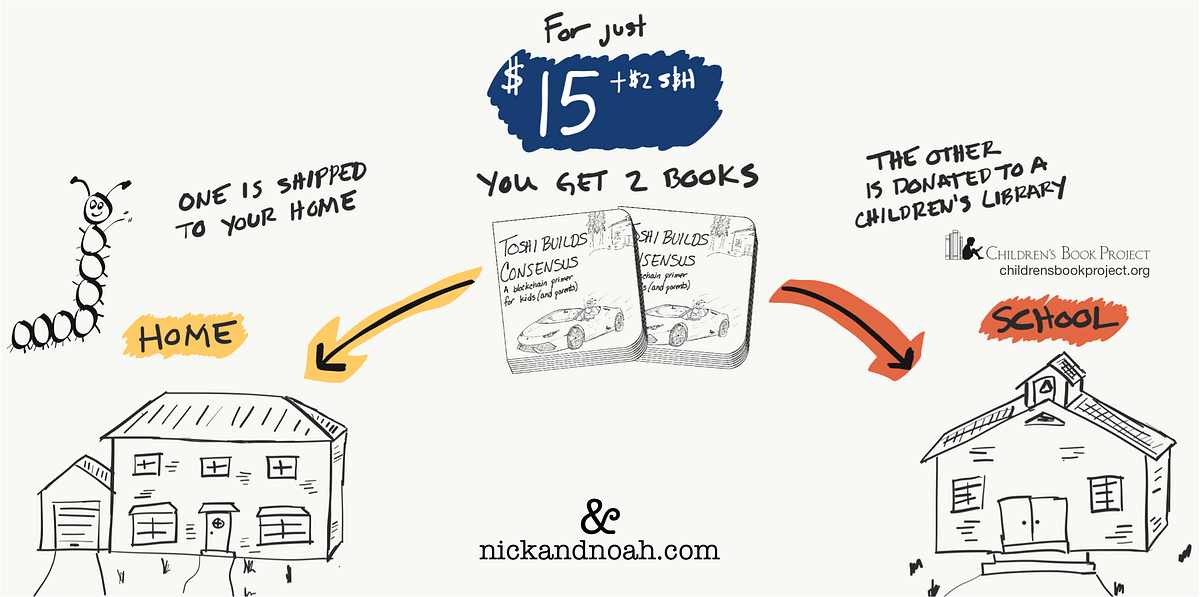 For just
$15 +$2 S&H
YOU GET 2 BOOKS
ONE IS SHIPPED
TO YOUR HOME
THE OTHER
IS DONATED TO A
CHILDREN'S LIBRARY
CHILDREN'S BOOK PROJECT
childrensbookproject.org
TOSHI BUILDS
CONSENSUS
A blockchain primer
for kids (and parents)
OSHI BUILDS
NSENSUS
kchain primer
s (and parents)
HOME
SCHOOL
&
nickandnoah.com